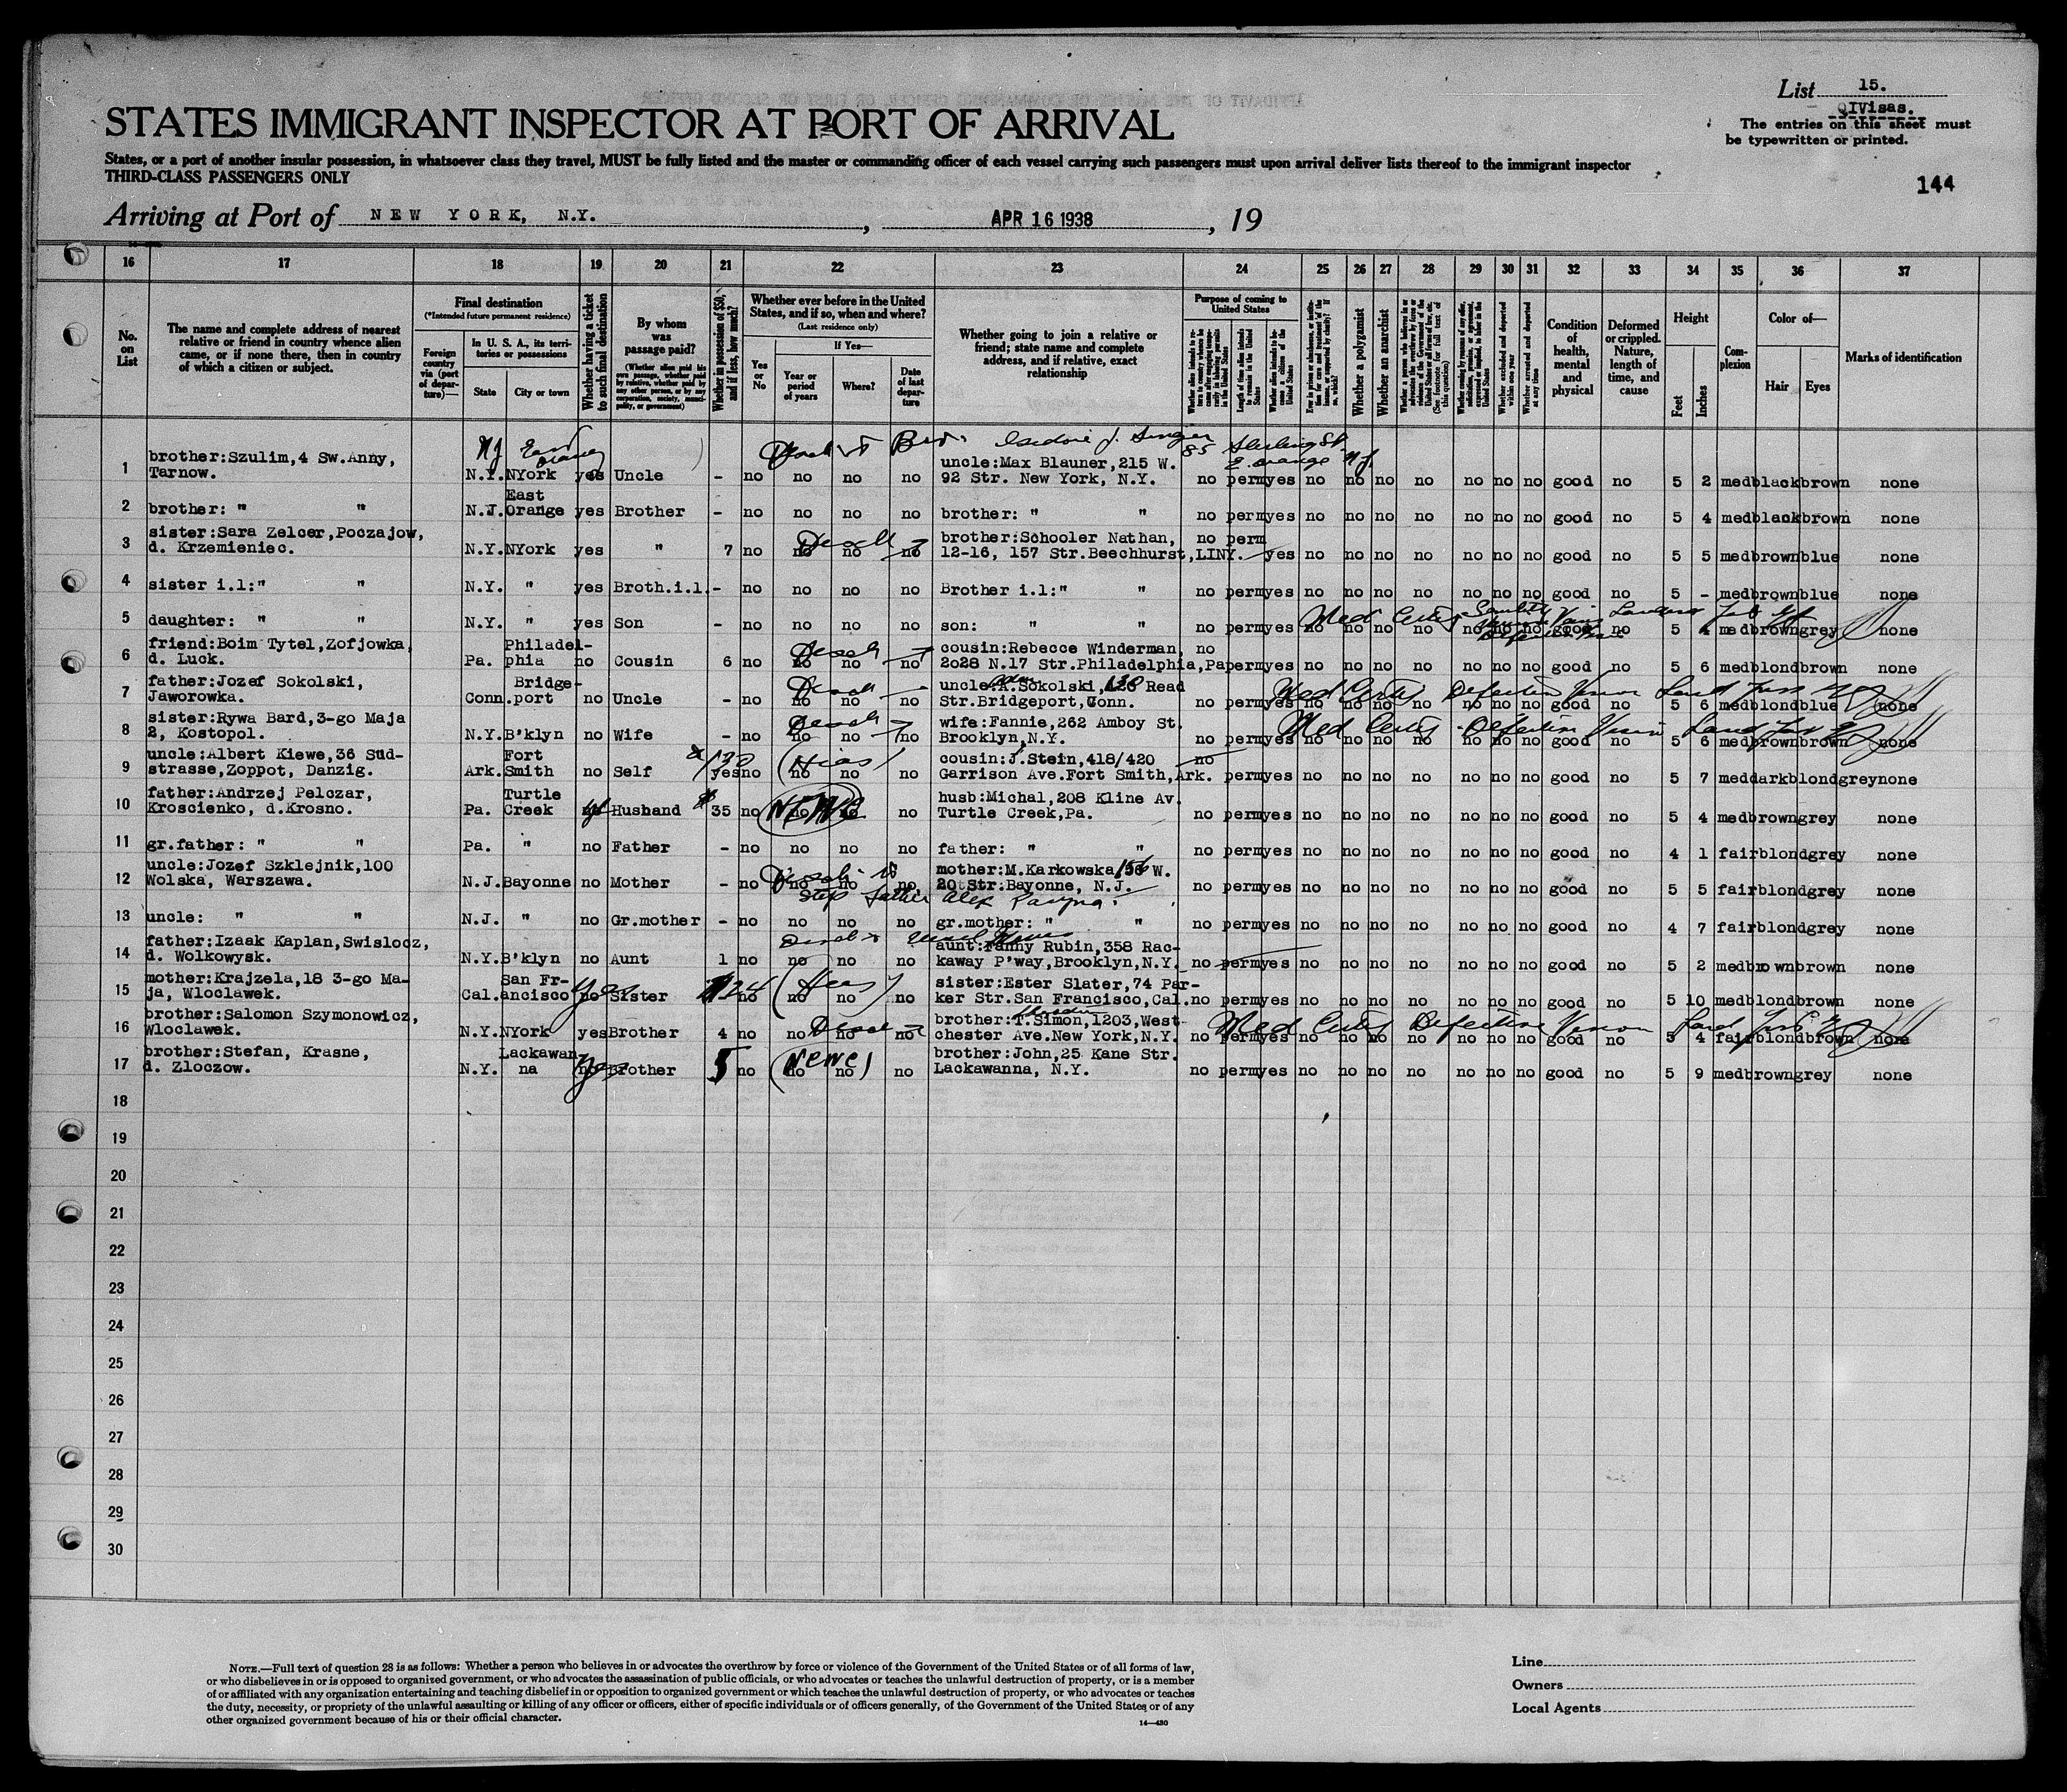 List 15.
QIVisas.
The entries on this sheet must
be typewritten or printed.
STATES IMMIGRANT INSPECTOR AT PORT OF ARRIVAL
States, or a port of another insular possession, in whatsoever class they travel, MUST be fully listed and the master or commanding officer of each vessel carrying such passengers must upon arrival deliver lists thereof to the immigrant inspector
THIRD-CLASS PASSENGERS ONLY
144
Arriving at Port of NEW YORK, N.Y. , APR 16 1938 , 19
16 17 18 19 20 21 22 23 24 25 26 27 28 29 30 31 32 33 34 35 36 37
No. on List
The name and complete address of nearest relative or friend in country whence alien came, or if none there, then in country of which a citizen or subject.
Final destination
(*Intended future permanent residence)
Foreign country via (port of departure)—
In U. S. A., its territories or possessions
State
City or town
Whether having a ticket to such final destination
By whom was passage paid?
(Whether alien paid his own passage, whether paid by relative, whether paid by any other person, or by any corporation, society, municipality, or government)
Whether in possession of $50, and if less, how much?
Whether ever before in the United States, and if so, when and where?
(Last residence only)
Yes or No
If Yes—
Year or period of years
Where?
Date of last departure
Whether going to join a relative or friend; state name and complete address, and if relative, exact relationship
Purpose of coming to United States
Length of time alien intends to remain in the United States
Whether alien intends to become a citizen of the United States
Whether a polygamist
Whether an anarchist
(See footnote for full text of this question)
Whether excluded and deported within one year
Whether arrested and deported at any time
Condition of health, mental and physical
Deformed or crippled. Nature, length of time, and cause
Height
Feet
Inches
Complexion
Color of—
Hair
Eyes
Marks of identification
NJ East Orange Isidore J. Singer 85 Sterling St. E. Orange N.J.
1 brother:Szulim,4 Sw.Anny, Tarnow. N.Y. NYork yes Uncle - no no no no uncle:Max Blauner,215 W. 92 Str. New York, N.Y. no perm yes no no no no no no no good no 5 2 med black brown none
2 brother: " " N.J. East Orange yes Brother - no no no no brother: " " no perm yes no no no no no no no good no 5 4 med black brown none
3 sister:Sara Zelcer,Poczajow, d. Krzemieniec. N.Y. NYork yes " 7 no no no no brother:Schooler Nathan, 12-16, 157 Str.Beechhurst,LINY. no perm yes no no no no no no no good no 5 5 med brown blue none
4 sister i.l:" " N.Y. " yes Broth.i.l. - no no no no Brother i.l:" " no perm yes no no no no no no no good no 5 - med brown blue none
5 daughter: " " N.Y. " yes Son - no no no no son: " " no perm yes no no no no no no no good no 5 4 med brown grey none
Med Certif
6 friend:Boim Tytel,Zofjowka, d. Luck. Pa. Philadelphia no Cousin 6 no no no no cousin:Rebecce Winderman, 2028 N.17 Str.Philadelphia,Pa no perm yes no no no no no no no good no 5 6 med blond brown none
7 father:Jozef Sokolski, Jaworowka. Conn. Bridgeport no Uncle - no no no no uncle:A.Sokolski, 130 Read Str.Bridgeport, Conn. no perm yes no no no no no no no good no 5 6 med blond blue none
Med Certif Defective Vision
8 sister:Rywa Bard,3-go Maja 2, Kostopol. N.Y. B'klyn no Wife - no no no no wife:Fannie,262 Amboy St. Brooklyn,N.Y. no perm yes no no no no no no no good no 5 6 med brown brown none
Med Certif Defective Vision
9 uncle:Albert Kiewe,36 Süd- strasse,Zoppot, Danzig. Ark. Fort Smith no Self 130 yes no no no no (Hias) cousin:J.Stein,418/420 Garrison Ave.Fort Smith,Ark. no perm yes no no no no no no no good no 5 7 med darkblond grey none
10 father:Andrzej Pelczar, Kroscienko, d.Krosno. Pa. Turtle Creek Husband $ 35 no no no no husb:Michal,208 Kline Av. Turtle Creek,Pa. no perm yes no no no no no no no good no 5 4 med brown grey none
11 gr.father: " " Pa. " no Father - no no no no father: " " no perm yes no no no no no no no good no 4 1 fair blond grey none
12 uncle:Jozef Szklejnik,100 Wolska, Warszawa. N.J. Bayonne no Mother - no no no no mother:M.Karkowska 156 W. 20 Str.Bayonne, N.J. no perm yes no no no no no no no good no 5 5 fair blond grey none
step father Alex
13 uncle: " " N.J. " no Gr.mother - no no no no gr.mother: " " no perm yes no no no no no no no good no 4 7 fair blond grey none
14 father:Izaak Kaplan,Swislocz, d. Wolkowysk. N.Y. B'klyn no Aunt 1 no no no no aunt:Fanny Rubin,358 Rac- kaway P'way,Brooklyn,N.Y. no perm yes no no no no no no no good no 5 2 med brown brown none
15 mother:Krajzela,18 3-go Ma- ja, Wloclawek. Cal. San Francisco no yes Sister no no no no (Hias) sister:Ester Slater,74 Par- ker Str.San Francisco,Cal. no perm yes no no no no no no no good no 5 10 med blond brown none
16 brother:Salomon Szymonowicz, Wloclawek. N.Y. NYork yes Brother 4 no no no no brother:T.Simon,1203,West- chester Ave.New York,N.Y. no perm yes no no no no no no no good no 5 4 fair blond brown none
Med Certif Defective Vision
17 brother:Stefan, Krasne, d. Zloczow. N.Y. Lackawanna no yes Brother 5 no no no no brother:John,25 Kane Str. Lackawanna, N.Y. no perm yes no no no no no no no good no 5 9 med brown grey none
18
19
20
21
22
23
24
25
26
27
28
29
30
NOTE.—Full text of question 28 is as follows: Whether a person who believes in or advocates the overthrow by force or violence of the Government of the United States or of all forms of law,
or who disbelieves in or is opposed to organized government, or who advocates the assassination of public officials, or who advocates or teaches the unlawful destruction of property, or is a member
of or affiliated with any organization entertaining and teaching disbelief in or opposition to organized government or which teaches the unlawful destruction of property, or who advocates or teaches
the duty, necessity, or propriety of the unlawful assaulting or killing of any officer or officers, either of specific individuals or of officers generally, of the Government of the United States or of any
other organized government because of his or their official character.
14—430
Line
Owners
Local Agents